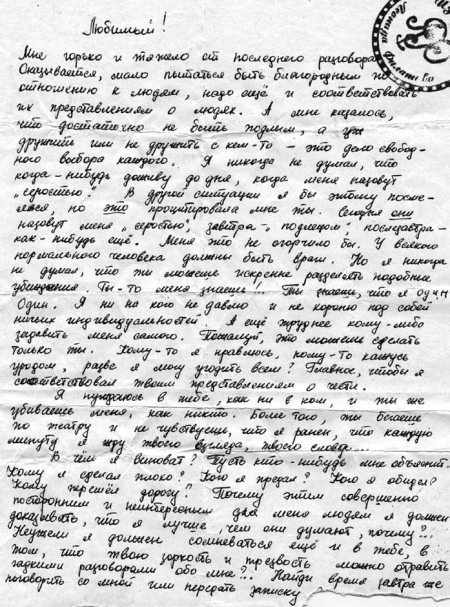 Любимый!
Мне горько и тяжело от последнего разговора.
Оказывается, мало пытаться быть благородным по
отношению к людям, надо ещё и соответствовать
их представлениям о людях. А мне казалось,
что достаточно не быть подлым, а уж
дружить или не дружить с кем-то – это дело свобод-
ного выбора каждого. Я никогда не думал, что
когда-нибудь доживу до дня, когда меня назовут
„серостью". В другой ситуации я бы этому посме-
ялся, но это процитировала мне ты. Сегодня они
назовут меня „серостью", завтра – „подлецом", послезавтра –
как-нибудь ещё. Меня это не огорчило бы. У всякого
нормального человека должны быть враги. Но я никогда
не думал, что ты можешь искренне разделять подобные
убеждения. Ты-то меня знаешь!.. Ты знаешь, что я один
Один. Я ни на кого не давлю и не хороню под собой
ничьих индивидуальностей. А ещё труднее кому-либо
задавить меня самого. Пожалуй, это можешь сделать
только ты. Кому-то я нравлюсь, кому-то кажусь
уродом, разве я могу угодить всем? Главное, чтобы я
соответствовал твоим представлениям о чести.
Я нуждаюсь в тебе, как ни в ком, и ты же
убиваешь меня, как никто. Более того, ты бегаешь
по театру и не чувствуешь, что я ранен, что каждую
минуту я жду твоего взгляда, твоего слова...
В чём я виноват? Пусть кто-нибудь мне объяснит.
Кому я сделал плохо? Кого я предал? Кого я обидел?
Кому перешёл дорогу? Почему этим совершенно
посторонним и неинтересным для меня людям я должен
доказывать, что я лучше, чем они думают, почему?..
Неужели я должен сомневаться ещё и в тебе, в
том, что твою зоркость и трезвость можно отравить
гадкими разговорами обо мне?.. Найди время завтра же
поговорить со мной или передать записку
Леонида Филатова